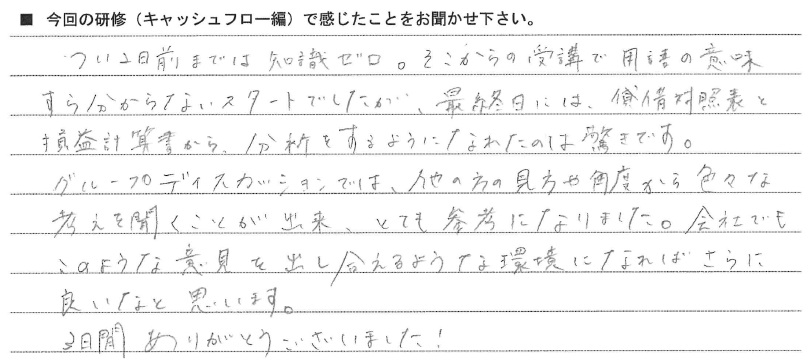 ■ 今回の研修（キャッシュフロー編）で感じたことをお聞かせ下さい。
つい2日前までは知識ゼロ。そこからの受講で用語の意味
すら分からないスタートでしたが、最終日には、貸借対照表と
損益計算書から、分析をするようになれたのは驚きです。
グループディスカッションでは、他の方の見方や角度から色々な
考えを聞くことが出来、とても参考になりました。会社でも
このような意見を出し合えるような環境になればさらに
良いなと思います。
3日間ありがとうございました！